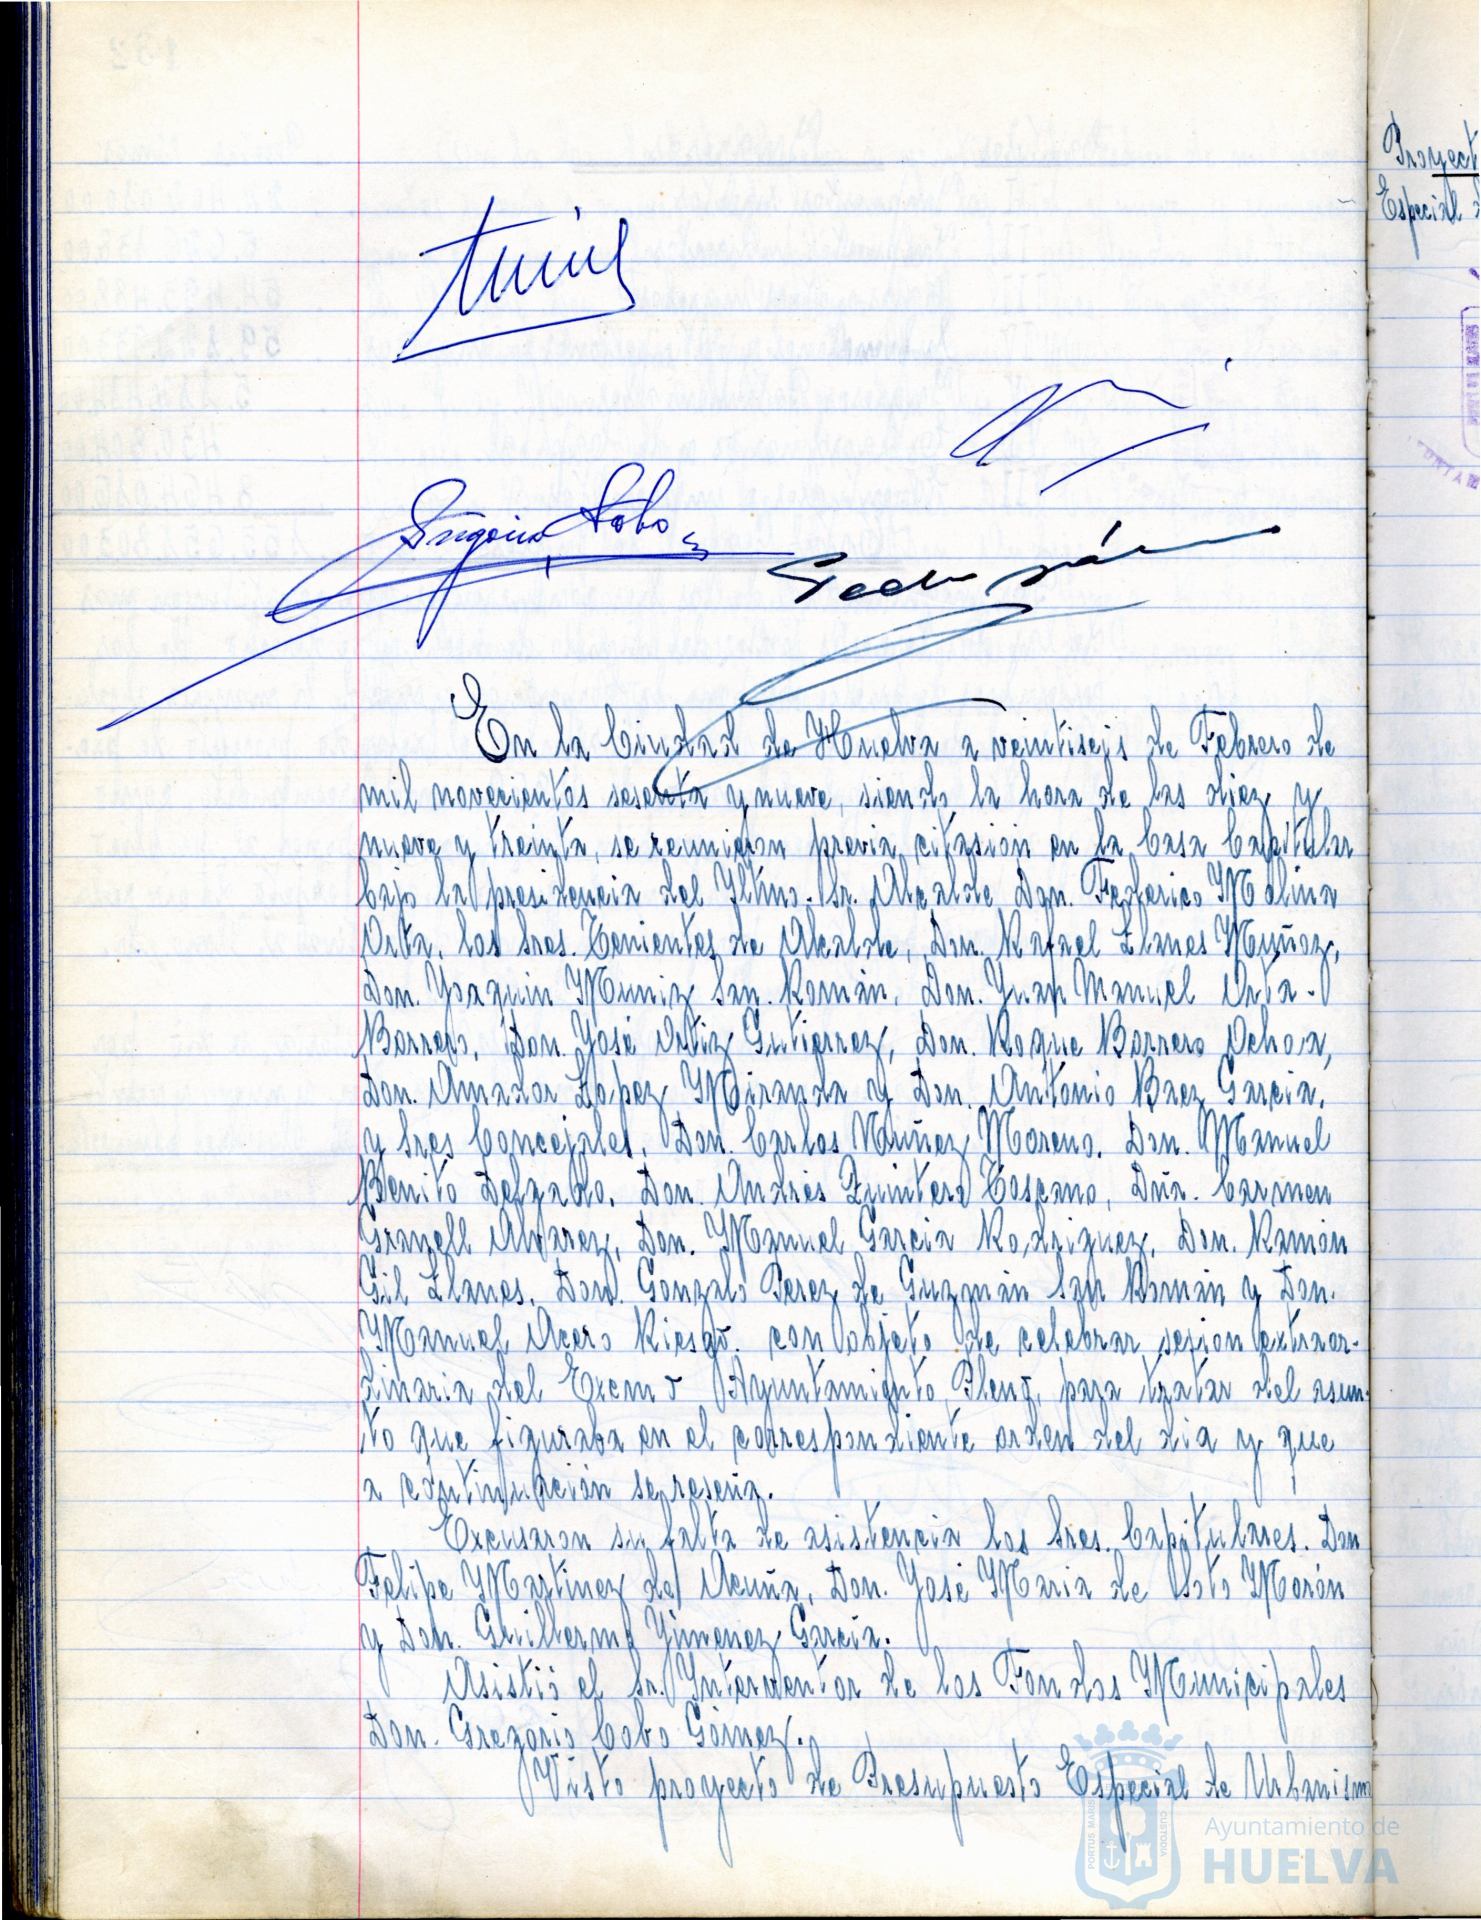 Gregorio Cobo
En la Ciudad de Huelva a veintiseis de Febrero de
mil novecientos sesenta y nueve, siendo la hora de las diez y
nueve y treinta, se reunieron previa citasión en la Casa Capitular
bajo la presidencia del Iltmo. Sr. Alcalde Don. Federico Molina
Orta, los Sres. Tenientes de Alcalde, Don. Rafael Llanes Muñoz,
Don. Joaquin Muniz San. Román, Don. Juan Manuel Orta-
Borrero, Don. José Ortiz Gutierrez, Don. Roque Borrero Ochoa,
Don. Amador López Miranda y Don. Antonio Baez Garcia,
y Sres Concejales, Don. Carlos Nuñez Moreno, Don. Manuel
Benito Delgado, Don. Andrés Quintero Toscano, Dña. Carmen
Granell Alvarez, Don. Manuel Garcia Rodriguez, Don. Ramón
Gil Llanes, Don. Gonzalo Perez de Guzmán San Román y Don.
Manuel Acero Riesgo, con objeto de celebrar sesion extraor-
dinaria del Excmo Ayuntamiento Pleno, para tratar del asun-
to que figuraba en el correspondiente orden del dia y que
a continuación se reseña.
Excusaron su falta de asistencia los Sres. Capitulares. Don
Felipe Martinez de Acuña, Don. José Maria de Soto Morón
y Don. Guillermo Jimenez Garcia.
Asistió el Sr. Interventor de los Fondos Municipales
Don. Gregorio Cobo Gómez.
Visto proyecto de Presupuesto Especial de Urbanismo
Proyect
Especial d
PORTUS MARIS
CUSTODIA
Ayuntamiento de
HUELVA